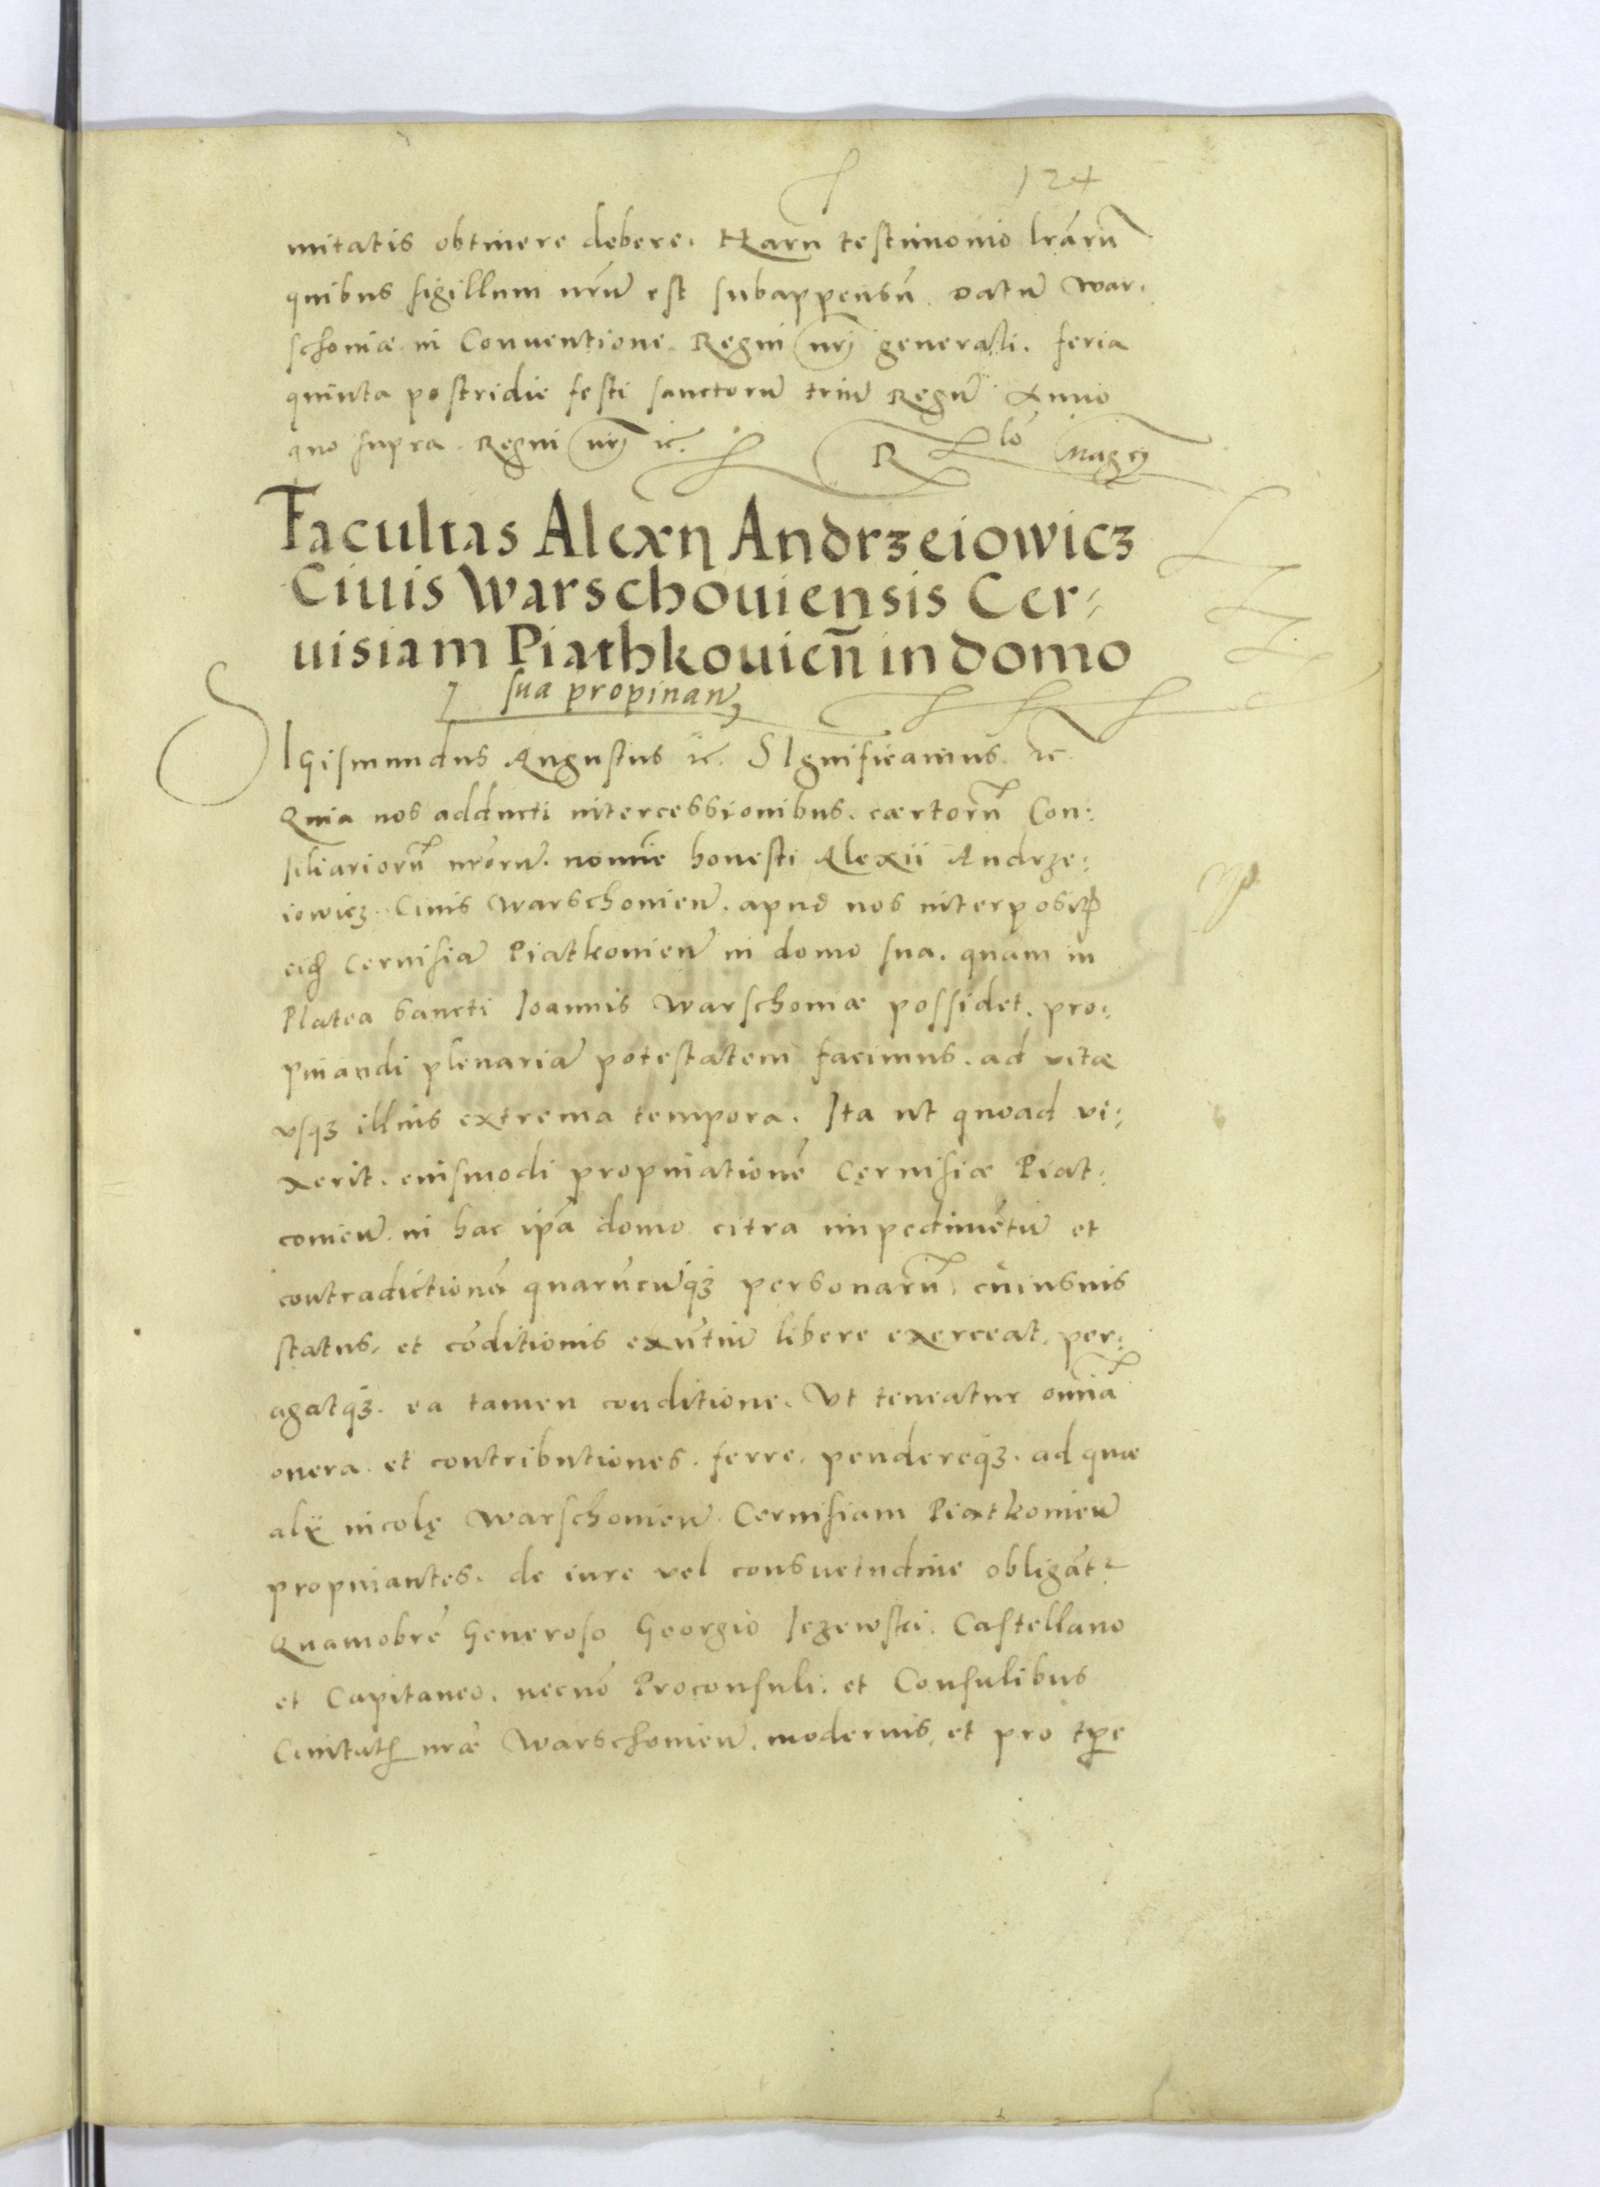 124
mitatis obtinere debere. Harū testimonio lrarū
quibus sigillum nrūm est subappensū. Datū War-
schoviæ in Conventione Regni nrj generali. feria
quinta postridie festi sanctorū triū Regū Anno
quo supra Regni nrj ꝛc. R
Facultas Alexÿ Andrzeiowicz
Ciuis Warschouiensis Cer-
uisiam Piathkouieñ in domo
sua propinan̄
SIGismundus Augustus ꝛc. SIgnificamus ꝛc.
Quia nos adducti intercessionibus. cærtorū Con-
siliariorū nrorū. nomīe honesti Alexii Andrze-
iowicz. Ciuis Warschouieñ. apud nos interpositꝭ
eiꝗ Ceruisiā Piatkouieñ in domo sua. quam in
Platea Sancti Ioannis Warschouiæ possidet. pro-
pinandi plenariā potestatem facimus. ad vitæ
vsqꝫ illius extrema tempora. Ita ut quoad vi-
xerit. eiusmodi propinationē Ceruisiæ Piat-
couieñ in hac ipā domo citra impedimētū et
contradictionē quarūcūqꝫ personarū cuiusuis
status, et cōditionis exn̄tiū libere exerceat, per-
agatqꝫ. ea tamen conditione. Vt teneatur omnia
onera. et contributiones. ferre. pendereqꝫ. ad quæ
alÿ incolę Warschouieñ Ceruisiam Piatkouieñ
propinantes. de iure vel consuetudine obligāt᷑
Quamobrē Generoso Georgio Iezewski. Castellano
et Capitaneo. necnō Proconsuli. et Consulibus
Ciuitatꝭ nræ Warschouieñ. modernis, et pro tꝑe